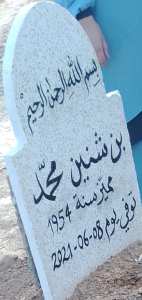 بسم الله الرحمن الرحيم
بن شنين محمد
ميز سنة 1954
توفي يوم 08-06-2021